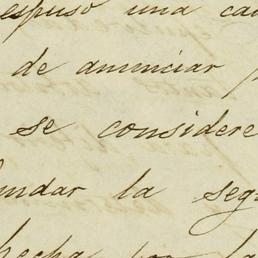 espuso una ca
de anunciar p
se considere
undar la segu
hecha por la